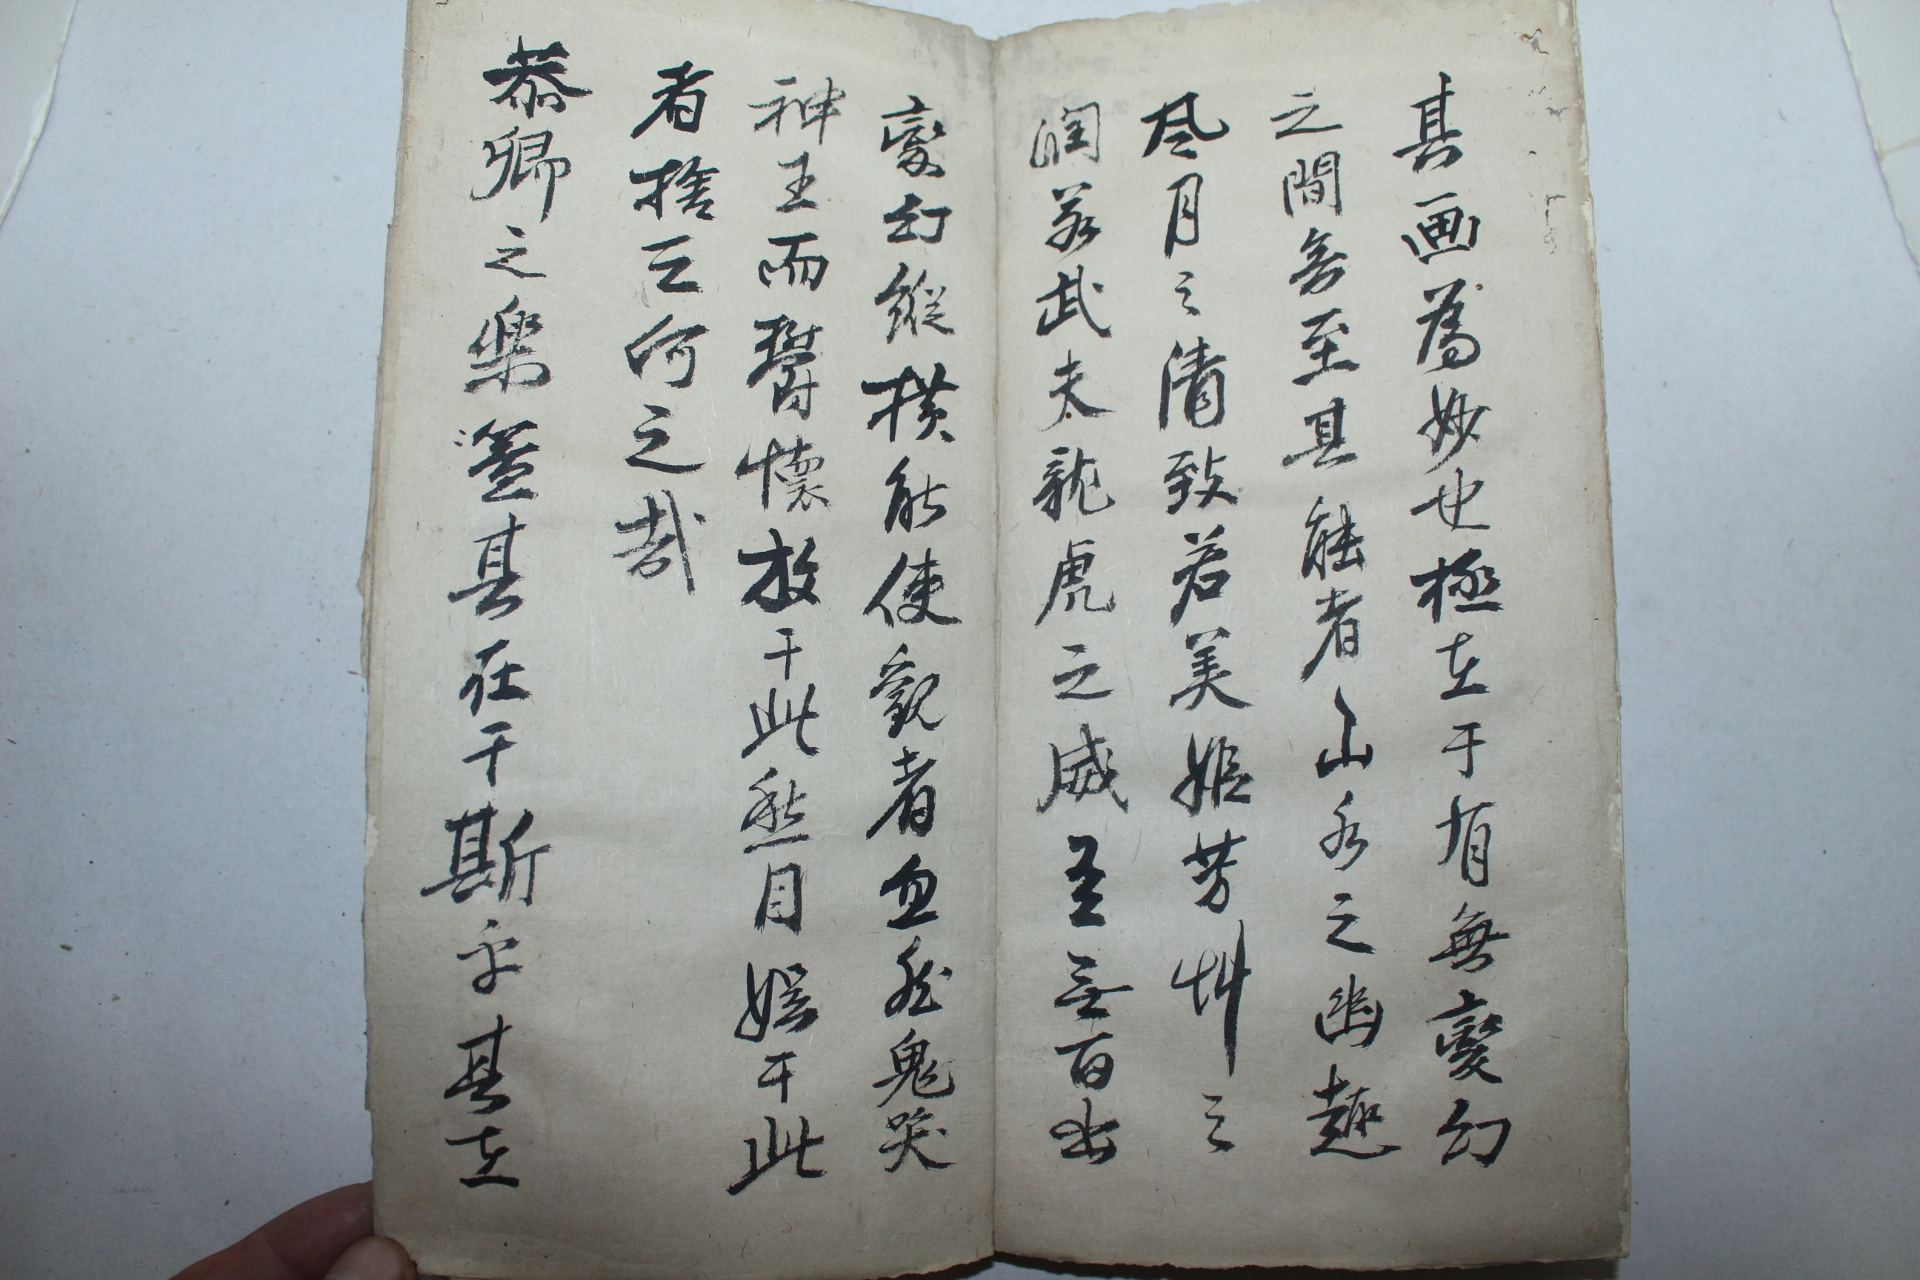 其画為妙也極在于有無變幻
之間旁至其能者山水之幽趣
風月之清致若美姬芳艸之
潤若武夫龍虎之威至無百出
變幻縱橫能使觀者血熱鬼哭
神王而欝懷放于此愁目娯于此
者捨之何之哉
恭卿之樂盖其在于斯乎其在